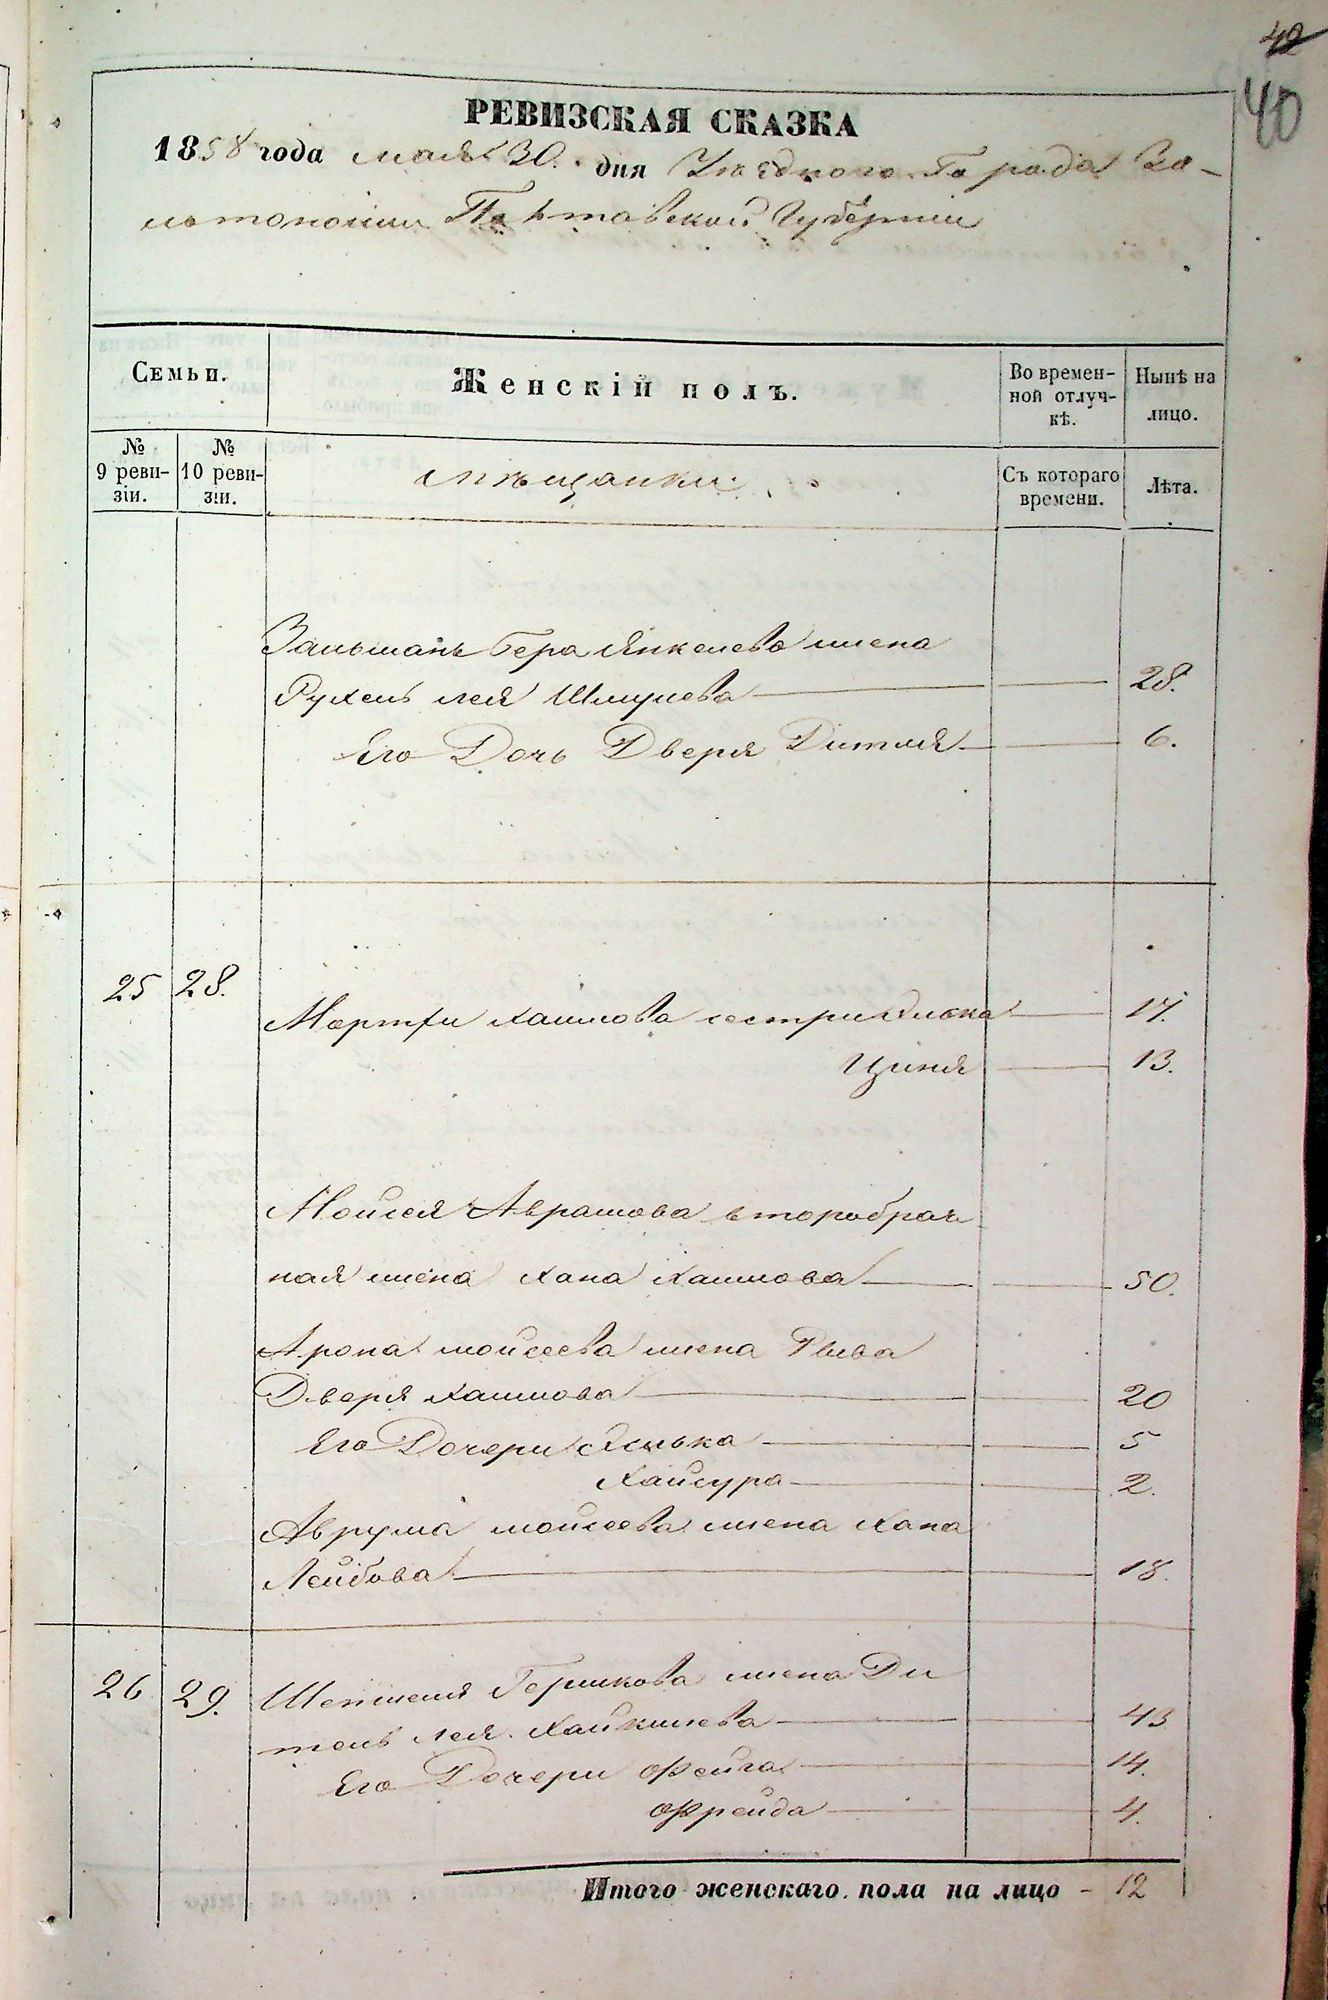 42
40
РЕВИЗСКАЯ СКАЗКА
1858 года мая 30. дня Уѣзднаго Города Зо-
лотоноши Полтавской Губерніи
Семьи.
Женскій полъ.
Во времен-
ной отлуч-
кѣ.
Нынѣ на
лицо.
№
9 реви-
зіи.
№
10 реви-
зіи.
мѣщанки.
Съ котораго
времени.
Лѣта.
Бера Янкелева жена
Рухель Лея Шмулева 28.
Его Дочь Двера 6.
25 28.
Хаимова сестры 17.
Циня 13.
Мойсея Аврамова второбрач
ная жена Хана Хаимова 50.
Арона Мойсеева жена Рыва
Двера Хаимова 20
Его Дочери 5
Хайсура 2.
Аврума Мойсеева жена Хана
Лейбова 18.
26 29. Гершкова жена Ди
Лея 43
Его Дочери Фейга 14.
Фрейда 4.
Итого женскаго пола на лицо - 12